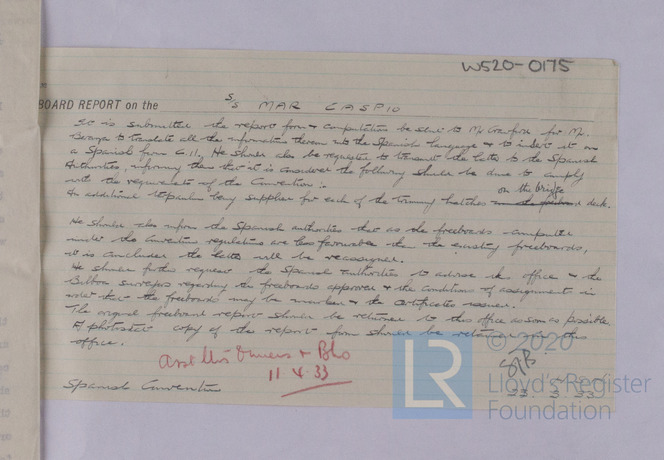 W520-0175
BOARD REPORT on the S/S MAR CASPIO
It is submitted the report form & computation be sent to Mr Crawford for Mr.
to translate all the information thereon into the Spanish language & to insert it on
a Spanish form C.11. He should also be requested to transmit the latter to the Spanish
Authorities, informing them that it is considered the following should be done to comply
with the requirements of the Convention:
on the bridge
An additional tarpaulin being supplied for each of the trimming hatches deck.
He should also inform the Spanish authorities that as the freeboards computed
under the Convention regulations are less favourable than the existing freeboards,
it is concluded the latter will be reassigned.
He should further request the Spanish Authorities to advise this office & the
Bilbao surveyors regarding the freeboards approved & the conditions of assignment in
order that the freeboards may be marked & the certificates issued.
The original freeboard report should be returned to this office as soon as possible.
A photostat copy of the report form should be retained in this
office.
11.4.33
Spanish Convention
23.3.33
LR
© 2020
Lloyd's Register
Foundation